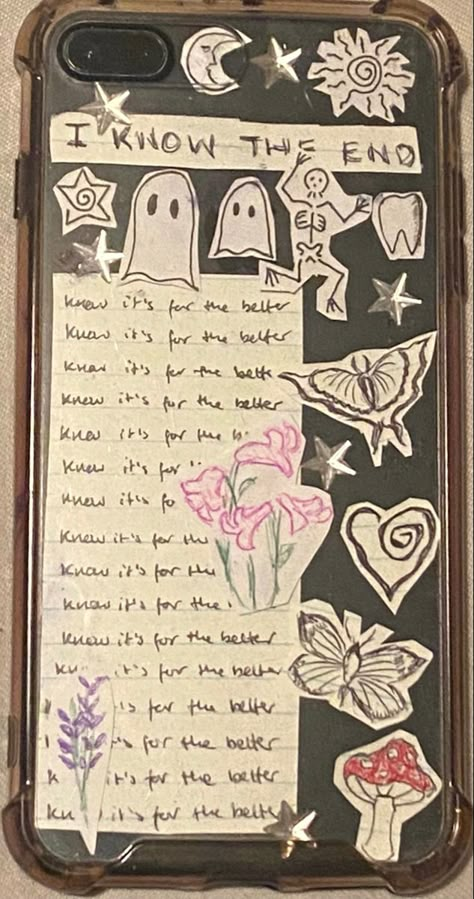 I KNOW THE END
know it's for the better
know it's for the better
know it's for the bette
know it's for the better
know it's for the b
know it's for
know it's fo
know it's for the
know it's for the
know it's for the
know it's for the better
kn it's for the better
is for the better
's for the better
k it's for the better
kn it's for the bett